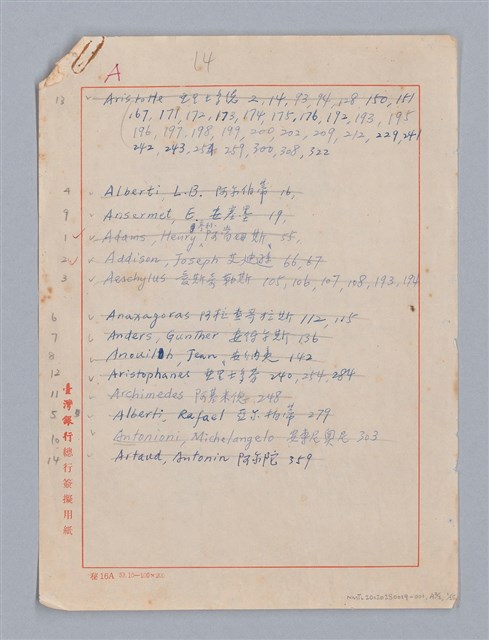 14
A
13 Aristotle 亞里士多德 2, 14, 93, 94, 128 150, 151
167, 171, 172, 173, 174, 175, 176, 192, 193, 195
196, 197, 198, 199, 200, 202, 209, 212, 229, 241
242, 243, 254 259, 300, 308, 322
4 Alberti, L.B. 阿尔伯蒂 16,
9 Ansermet, E. 安塞美 19,
1 Adams, Henry 阿當姆斯, 55,
2 Addison, Joseph 艾迪遜 66, 67
3 Aeschylus 105, 106, 107, 108, 193, 194
6 Anaxagoras 112, 115
7 Anders, Gunther 安德尔斯 136
8 Anouilh, Jean, 142
12 Aristophanes 240, 254, 284
11 Archimedes 阿基米德 248
5 Alberti, Rafael 亞尔伯蒂 279
10 Antonioni, Michelangelo 安東尼奧尼 303
14 Artaud, Antonin 阿尔陀 359
臺灣銀行總行簽擬用紙
16A